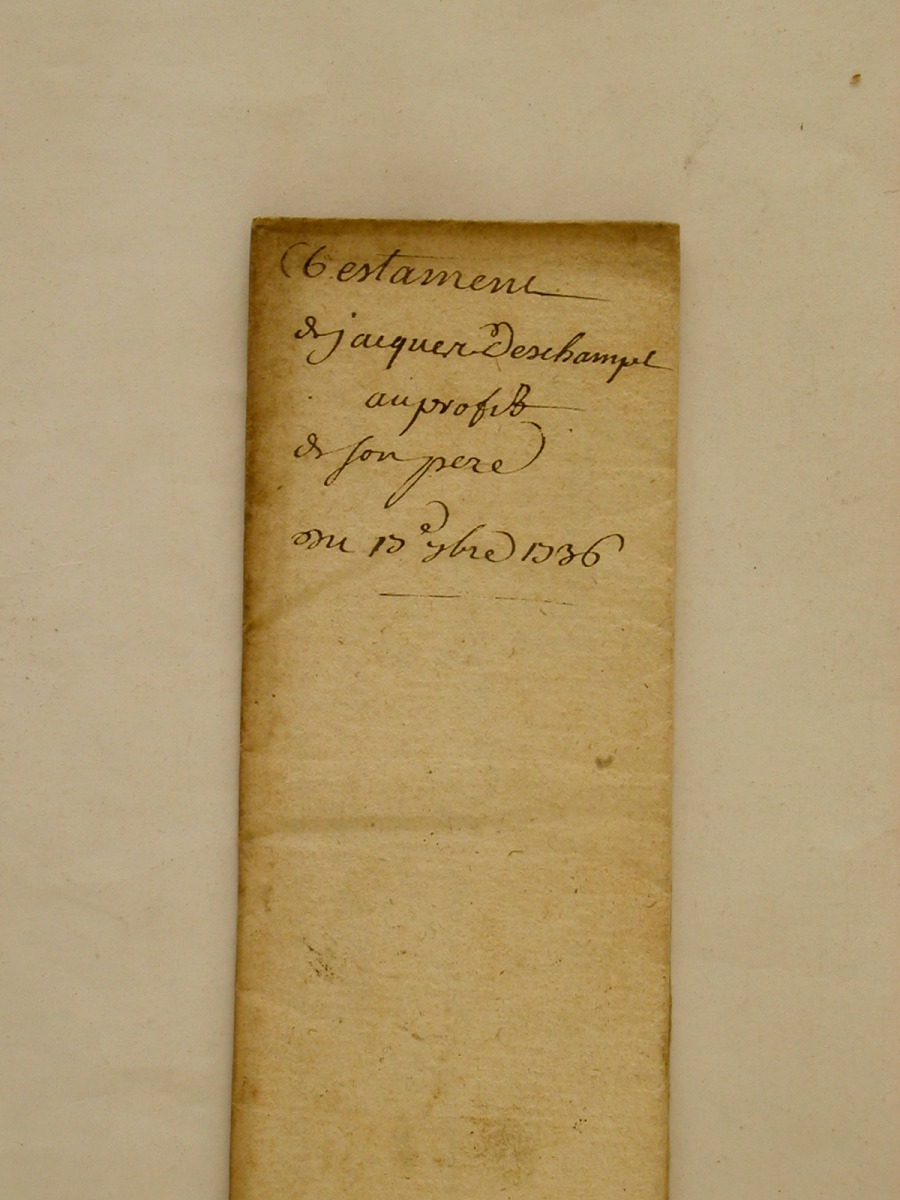 Testament
de jacques Deschamps
au profit
de son pere
Du 17e 9bre 1736